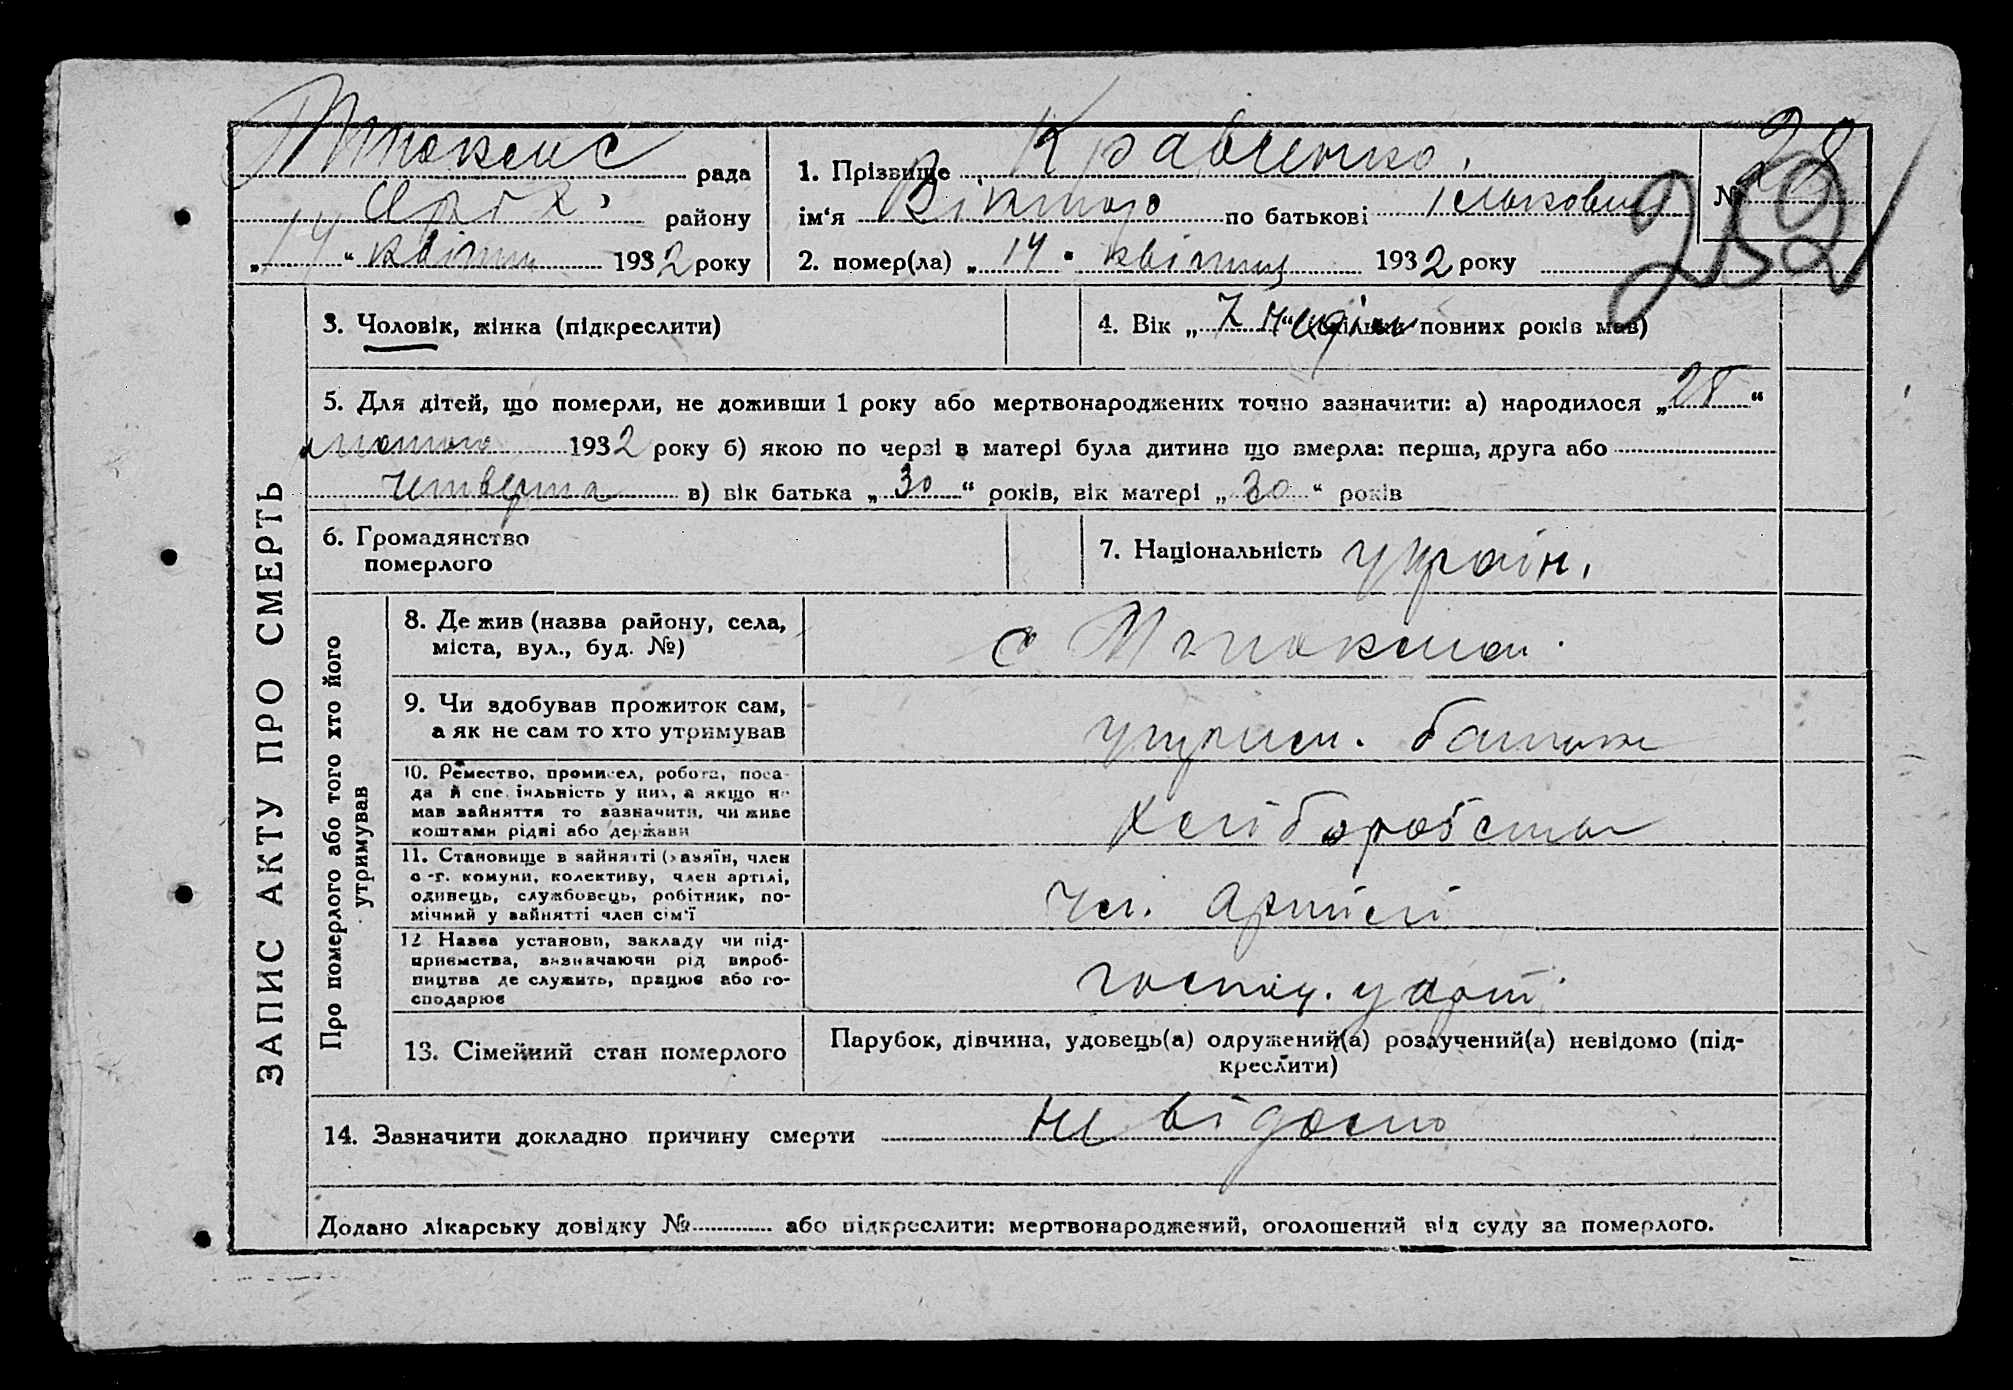 рада
району
„14“ квітня 1932 року
1. Прізвище Кравченко.
ім‘я Віктор по батькові
2. помер(ла) „14“ квітня 1932 року
№ 28
252
ЗАПИС АКТУ ПРО СМЕРТЬ
3. Чоловік, жінка (підкреслити)
4. Вік „7 неділь“ (скільки повних років мав)
5. Для дітей, що померли, не доживши 1 року або мертвонароджених точно зазначити: а) народилося „28“
лютого 1932 року б) якою по черзі в матері була дитина що вмерла: перша, друга або
четверта в) вік батька „30“ років, вік матері „30“ років
6. Громадянство
померлого
7. Національність україн.
Про померлого або того хто його
утримував
8. Де жив (назва району, села,
міста, вул., буд. №)
с
9. Чи здобував прожиток сам,
а як не сам то хто утримував
утрим. батьки
10. Ремество, промисел, робота, поса-
да й спеціяльність у них, а якщо не
мав зайняття то зазначити, чи живе
коштами рідні або держави
хліборобство
11. Становище в зайнятті (хазяїн, член
с.-г. комуни, колективу, член артілі,
одинець, службовець, робітник, по-
мічний у зайнятті член сім‘ї
чл. артілі
12. Назва установи, закладу чи під-
приємства, визначаючи рід вироб-
ництва де служить, працює або го-
сподарює
господ. у арт.
13. Сімейний стан померлого
Парубок, дівчина, удовець(а) одружений(а) розлучений(а) невідомо (під-
креслити)
14. Зазначити докладно причину смерти невідомо
Додано лікарську довідку № або підкреслити: мертвонароджений, оголошений від суду за померлого.